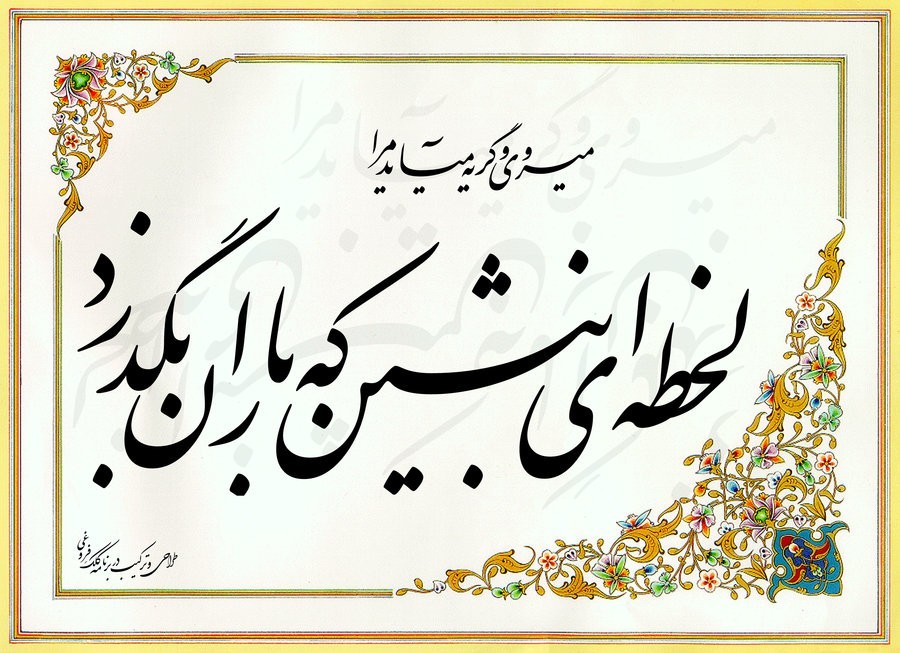 میروی و گریه میآید مرا
لحظه ای بنشین که باران بگذرد
طراحی و ترکیب در برنامه کلک فروغی